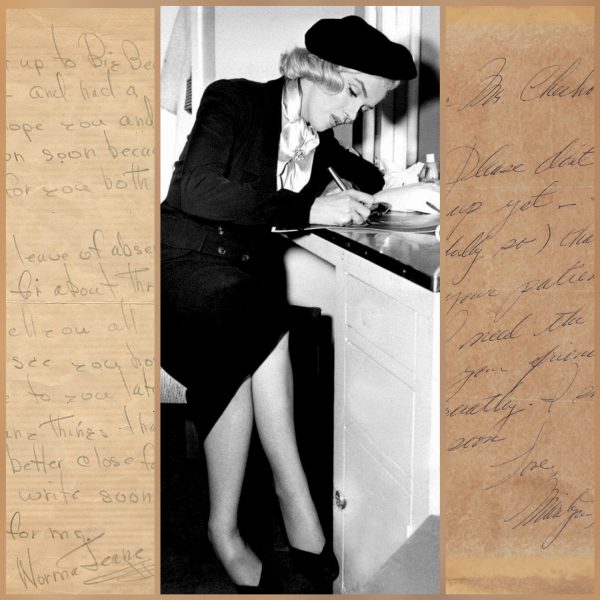 up to Big Be
and had a
hope you and
on soon becau
for you both
leave of abse
for about thr
ell you all
see you bo
e to you lat
ing things tha
better close fo
write soon
for me.
Norma Jeane
Mr. Chekho
Please don't
up yet -
ully so) tha
your patien
I need the
your frien
erately. I
soon
Love,
Marilyn